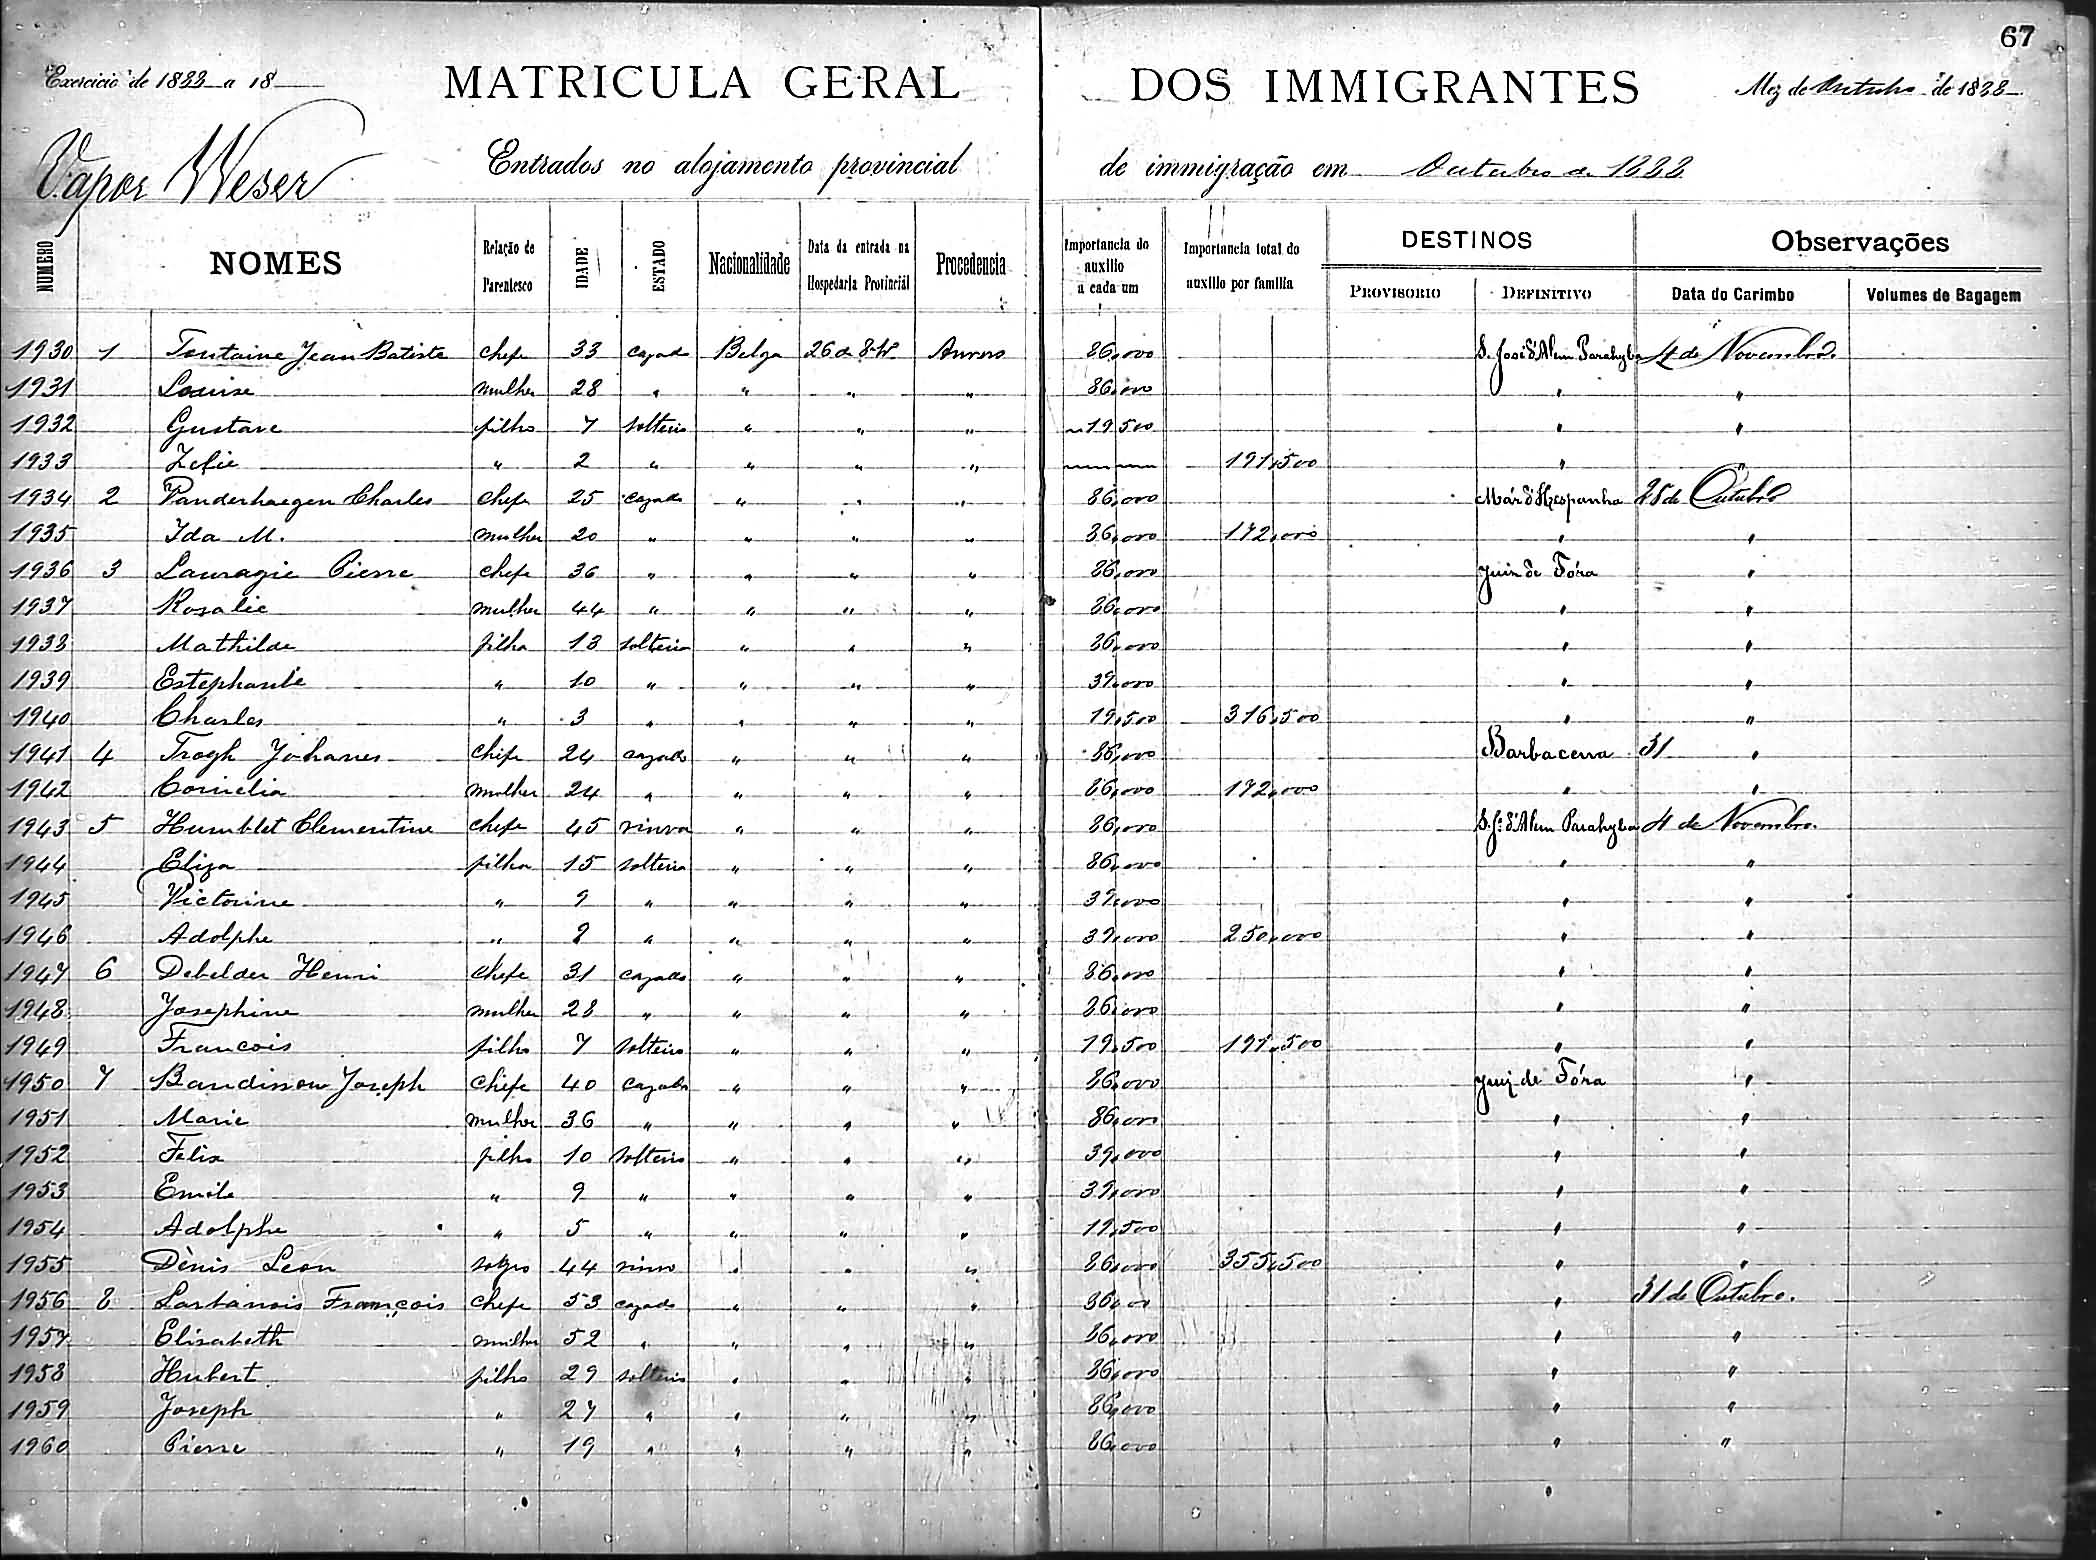 67
Exercicio de 1888 a 18
MATRICULA GERAL DOS IMMIGRANTES
Mez de Outubro de 1888
Vapor Weser
Entrados no alojamento provincial de immigração em Outubro de 1888
NUMERO NOMES Relação de Parentesco IDADE ESTADO Nacionalidade Data da entrada na Hospedaria Provincial Procedencia Importancia do auxilio a cada um Importancia total do auxilio por familia DESTINOS PROVISORIO DEFINITIVO Observações Data do Carimbo Volumes de Bagagem
1930 1 Fontaine Jean Batiste chefe 33 cazado Belga 26 de 8bro Anvers 86,000 S. José d'Alem Parahyba 4 de Novembro.
1931 Louise mulher 28 " " " " 86,000 " "
1932 Gustave filho 7 solteiro " " " 19,500 " "
1933 Zefie " 2 " " " " 191,500 " "
1934 2 Vanderhaegen Charles chefe 25 cazado " " " 86,000 Már d'Hespanha 28 de Outubro
1935 Ida M. mulher 20 " " " " 86,000 172,000 " "
1936 3 Lauragie Pierre chefe 36 " " " " 86,000 Juiz de Fóra "
1937 Rosalie mulher 44 " " " " 86,000 " "
1938 Mathilde filha 13 solteira " " " 86,000 " "
1939 Estephanie " 10 " " " " 39,000 " "
1940 Charles " 3 " " " " 19,500 316,500 " "
1941 4 Trogh Johanes chefe 24 cazado " " " 86,000 Barbacena 31 "
1942 Cornelia mulher 24 " " " " 86,000 172,000 " "
1943 5 Humblet Clementine chefe 45 viuva " " " 86,000 S. Jé d'Alem Parahyba 4 de Novembro.
1944 Eliza filha 15 solteira " " " 86,000 " "
1945 Victorine " 9 " " " " 39,000 " "
1946 Adolphe " 8 " " " " 39,000 250,000 " "
1947 6 Debelder Henri chefe 31 cazado " " " 86,000 " "
1948 Josephine mulher 28 " " " " 86,000 " "
1949 Francois filho 7 solteiro " " " 19,500 191,500 " "
1950 7 Baudisson Joseph chefe 40 cazado " " " 86,000 Juiz de Fóra "
1951 Marie mulher 36 " " " " 86,000 " "
1952 Felix filho 10 solteiro " " " 39,000 " "
1953 Emile " 9 " " " " 39,000 " "
1954 Adolphe " 5 " " " " 19,500 " "
1955 Dènis Leon sogro 44 viuvo " " " 86,000 355,500 " "
1956 8 François chefe 53 cazado " " " 86,000 " 31 de Outubro.
1957 Elisabeth mulher 52 " " " " 86,000 " "
1958 Hubert filho 29 solteiro " " " 86,000 " "
1959 Joseph " 27 " " " " 86,000 " "
1960 Pierre " 19 " " " " 86,000 " "